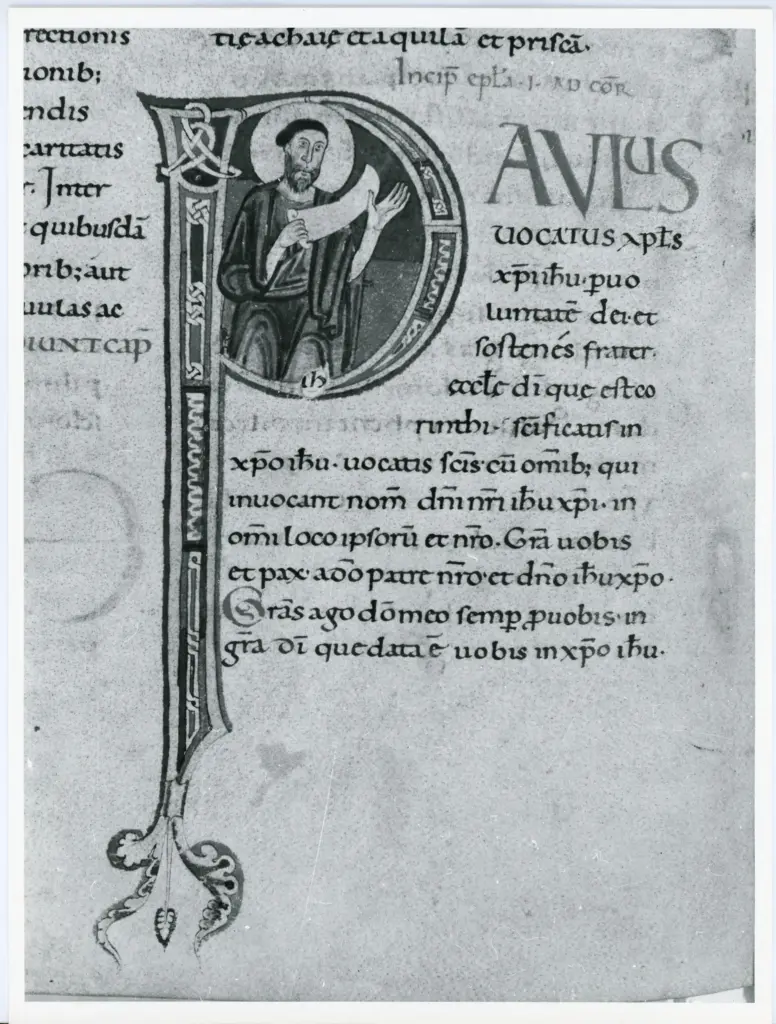 rectionis
ionib;
endis
caritatis
r. Inter
quibusdā
orib; aut
uulas ac
IUNT CAP̄
tię achaię et aquilā et priscā.
Incip̄ ep̄la .I. AD COR̄
PAVLUS
UOCATUS xp̄l̄s
xp̄i ih̄u. ꝑ uo
luntatē dei. et
sostenés frater.
ęccl̄ę dī quę est co
rinthi. sc̄ificatis in
xp̄o ih̄u. uocatis sc̄is cū om̄ib; qui
inuocant nom̄ dn̄i nr̄i ih̄u xp̄i. in
om̄i loco ipsorū et nr̄o. Gr̄a uobis
et pax a dō patre nr̄o et dn̄o ih̄u xp̄o.
Gr̄as ago dō meo semꝑ ꝓ uobis in
gr̄a dī que data ē uobis in xp̄o ih̄u.